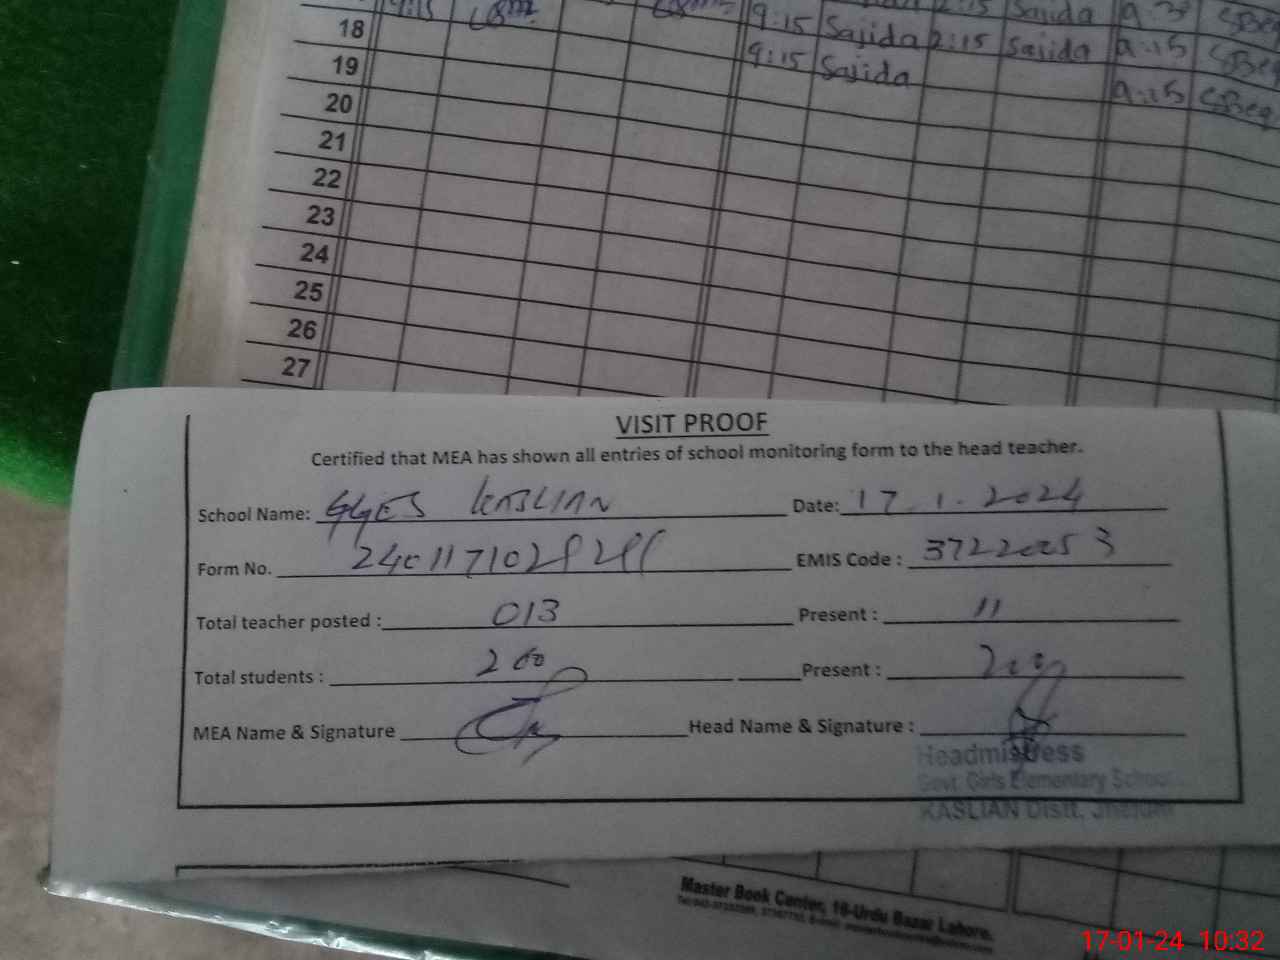 18 9:15 Sajida 2:15 Sajida 9:15
19 9:15 Sajida 9:15
20
21
22
23
24
25
26
27
VISIT PROOF
Certified that MEA has shown all entries of school monitoring form to the head teacher.
School Name: GGES KASLIAN Date: 17.1.2024
Form No. EMIS Code :
Total teacher posted : 013 Present : 11
Total students : 200 Present :
MEA Name & Signature Head Name & Signature :
Headmistress
Govt. Girls Elementary School
KASLIAN Distt. Jhelum
Master Book Center, 16-Urdu Bazar Lahore.
17-01-24 10:32